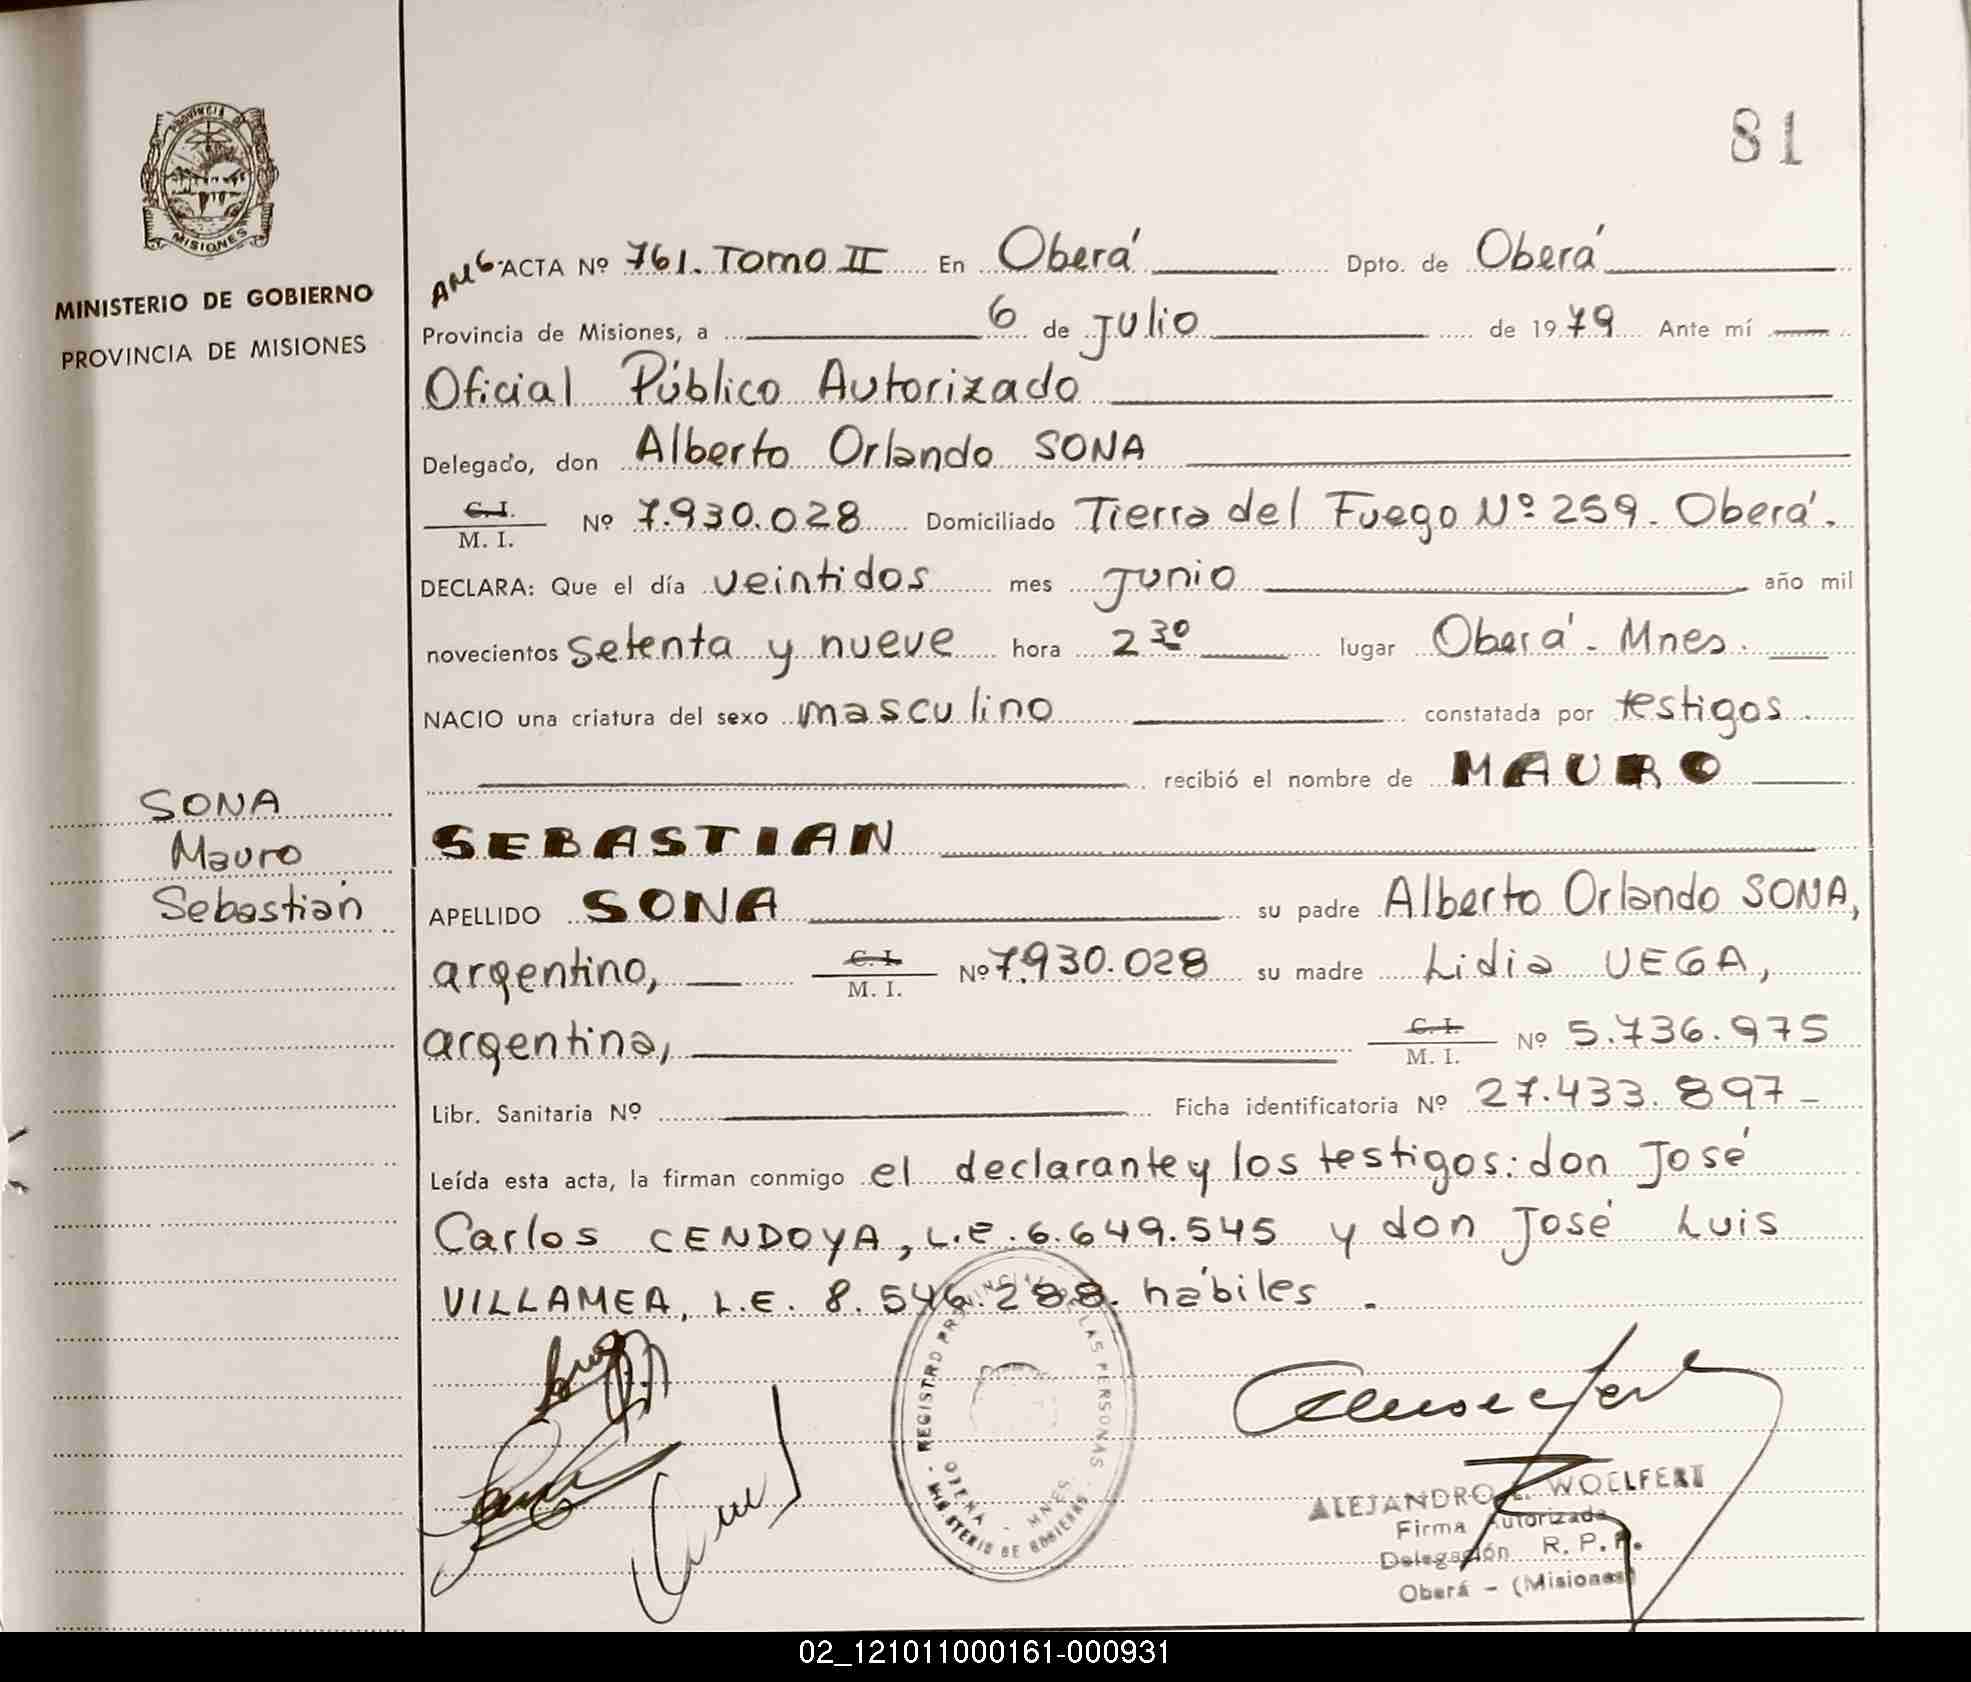 81
PROVINCIA DE
MISIONES
MINISTERIO DE GOBIERNO
PROVINCIA DE MISIONES
ACTA Nº 761. Tomo II En Oberá Dpto. de Oberá
Provincia de Misiones, a 6 de Julio de 1979 Ante mí
Oficial Público Autorizado
Delegado, don Alberto Orlando SONA
C. I.
M. I.
Nº 7.930.028 Domiciliado Tierra del Fuego Nº 259. Oberá.
DECLARA: Que el día veintidos mes Junio año mil
novecientos setenta y nueve hora 2 30 lugar Oberá. Mnes.
NACIO una criatura del sexo masculino constatada por testigos.
recibió el nombre de MAURO
SEBASTIAN
SONA
Mauro
Sebastián
APELLIDO SONA su padre Alberto Orlando SONA,
argentino, C. I. M. I. Nº 7.930.028 su madre Lidia VEGA,
argentina, C. I. M. I. Nº 5.736.975
Libr. Sanitaria Nº Ficha identificatoria Nº 27.433.897
Leída esta acta, la firman conmigo el declarante y los testigos: don José
Carlos CENDOYA, L.E. 6.649.545 y don José Luis
VILLAMEA, L.E. 8.546.288. hábiles.
REGISTRO PROVINCIAL DE LAS PERSONAS
MINISTERIO DE GOBIERNO
MNES.
ALEJANDRO WOELFERT
Firma Autorizada
Delegación R. P. P.
Oberá - (Misiones)
02_121011000161-000931